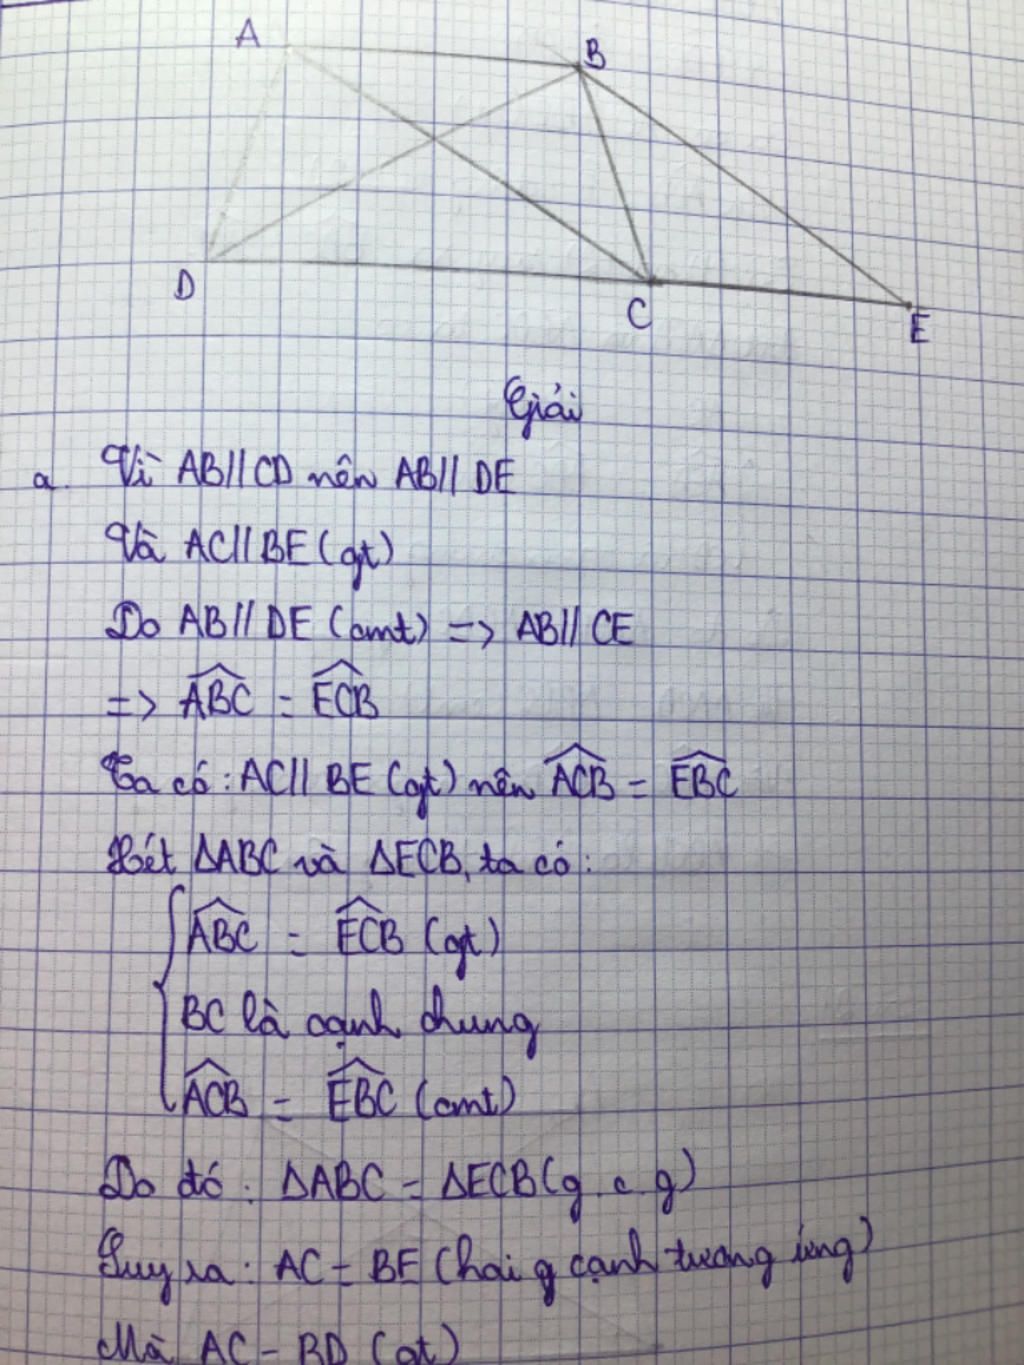 A
B
D
C
E
Giải
a. Vì AB // CD nên AB // DE
Và AC // BE (gt)
Do AB // DE (cmt) => AB // CE
=> \widehat{ABC} = \widehat{ECB}
Ta có : AC // BE (gt) nên \widehat{ACB} = \widehat{EBC}
Xét ΔABC và ΔECB, ta có :
\widehat{ABC} = \widehat{ECB} (gt)
BC là cạnh chung
\widehat{ACB} = \widehat{EBC} (cmt)
Do đó : ΔABC = ΔECB (g . c . g)
Suy ra : AC = BE (hai g cạnh tương ứng)
Mà AC = BD (gt)